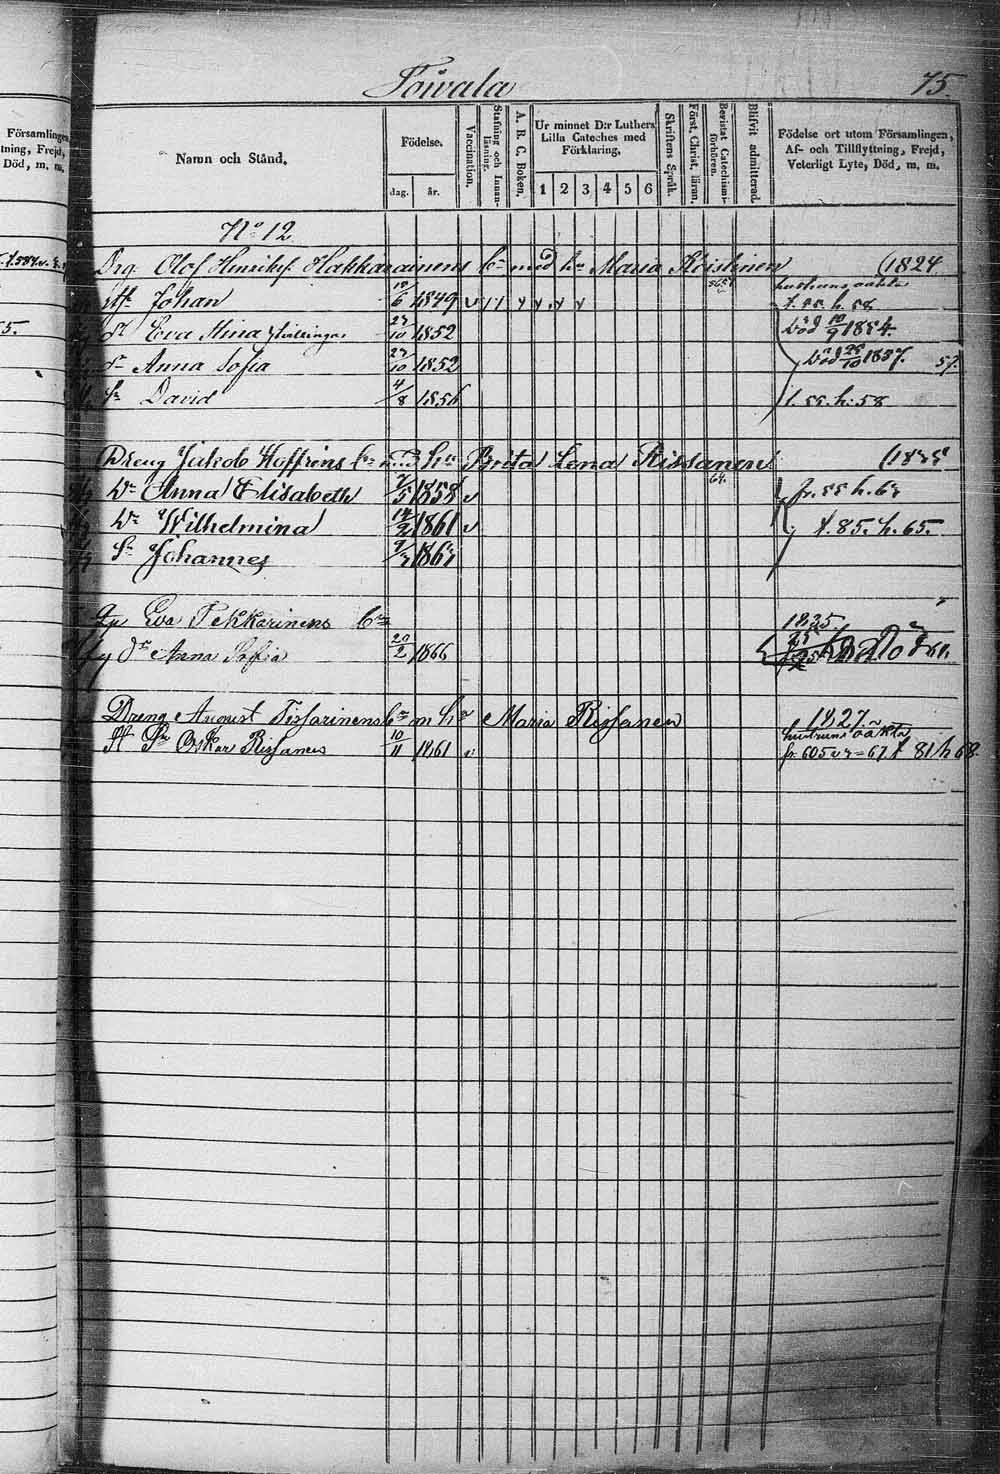 Toivala 75.
Församlingen,
tning, Frejd,
Död, m. m.
Namn och Stånd.
Födelse.
dag. år.
Vaccination.
Stafning och Innanläsning.
A. B. C. Boken.
Ur minnet D:r Luthers
Lilla Cateches med
Förklaring,
1 2 3 4 5 6
Skriftens Språk.
Först. Christ. läran.
Bevistat Catechismiförhören.
Blifvit admitterad.
Födelse ort utom Församlingen,
Af- och Tillflyttning, Frejd,
Veterligt Lyte, Död, m. m.
No 12
Drg. Olof Henriks. Hakkarainens bn med hu Maria Röistinen (1824
Johan 6 1849 v hustruns oäkta
t. 55 h. 58
5. dr Eva Stina tvillingar 27/10 1852 död 10/9 1854.
dr Anna Sofia 27/10 1852 död 25/10 1857. 57.
Sn David 4/8 1856 t. 55. h. 58
Dreng Jakob Hoffréns bn med hu Brita Lena Rissanen
Dr Anna Elisabeth 5 1858 v 64. fr. 55 h.
Dr Wilhelmina 1861 v t. 85. h. 65.
Sn Johannes
Eva Tekkarinens bn 1835.
dr Anna Sofia 20/2 1866
Dreng August Tissarinens bn m hu Maria Rissanen 1827.
Sn Oskar Rissanen 10/11 1861 v hustruns oäkta
fr. 605 67. t 81 h 68.